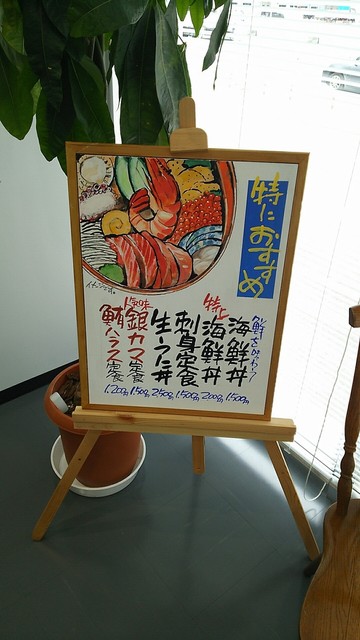 特におすすめ
海鮮丼 1,500円
特上 海鮮丼 2,000円
刺身定食 1,500円
生ウニ丼 2,500円
銀カマ定食 1,150円
鮪ハラス定食 1,200円
イメージです。